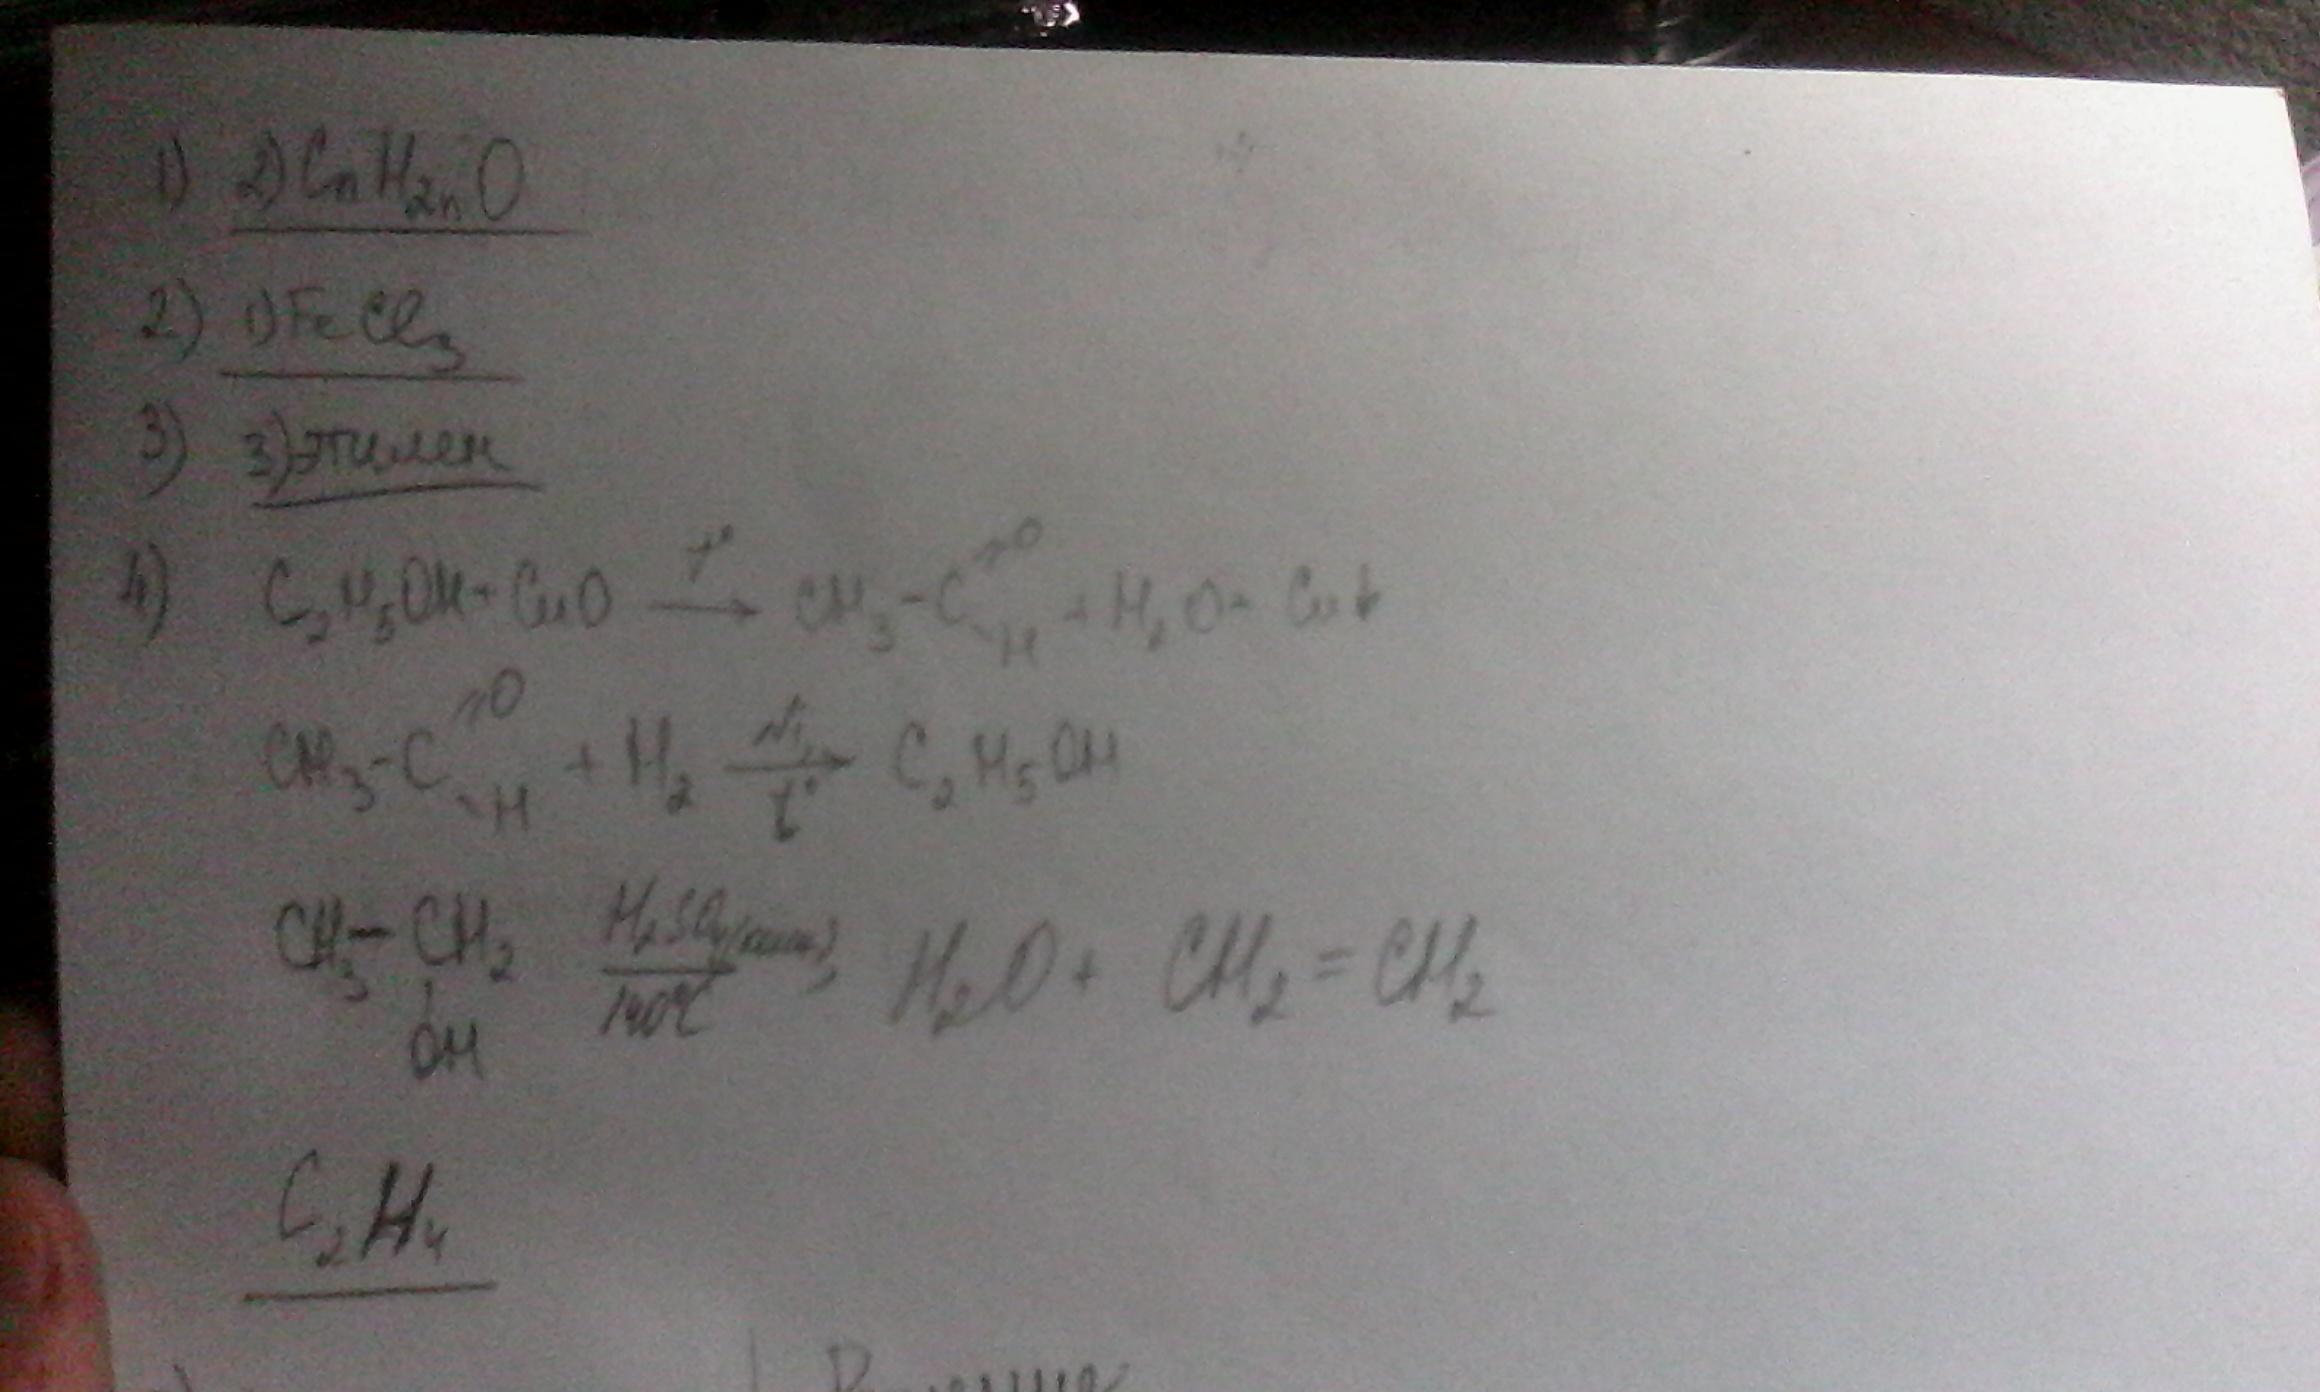 1) 2) CnH2nO
2) 1) FeCl3
3) 3) этилен
4) C2H5OH + CuO t° → CH3-C=O-H + H2O + Cu↓
CH3-C=O-H + H2 Ni, t° → C2H5OH
CH3-CH2-OH H2SO4(конц) 140°C H2O + CH2=CH2
C2H4